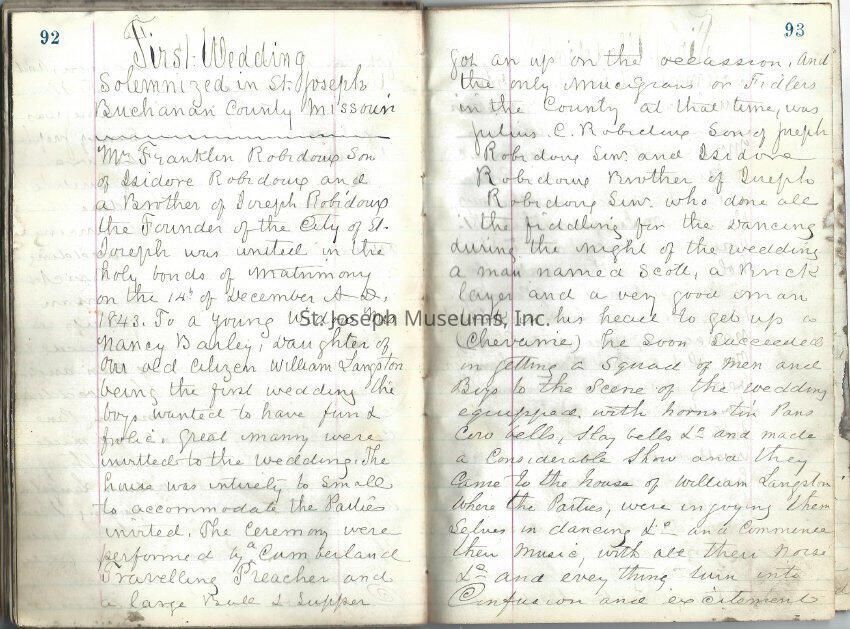 92
First Wedding
Solemnized in St. Joseph
Buchanan County Missouri
Mr. Franklin Robidoux Son
of Isidore Robidoux and
a Brother of Joseph Robidoux
the Founder of the City of St.
Joseph was united in the
holy bonds of matrimony
on the 14th of December A.D.
1843. To a young
Nancy Bailey, daughter of
Our old Citizen William Langston
being the first wedding the
boys wanted to have fun &
frolic. great manny were
invitted to the wedding. The
house was intirely to Small
to accommodate the Parties
invited. The Ceremony were
performed by a Cumberland
Travelling Preacher and
a large Ball & Supper
93
got an up on the occassion. And
the only Mucisians or Fidlers
in the County at that time, was
Julius. C. Robidoux Son of Joseph
Robidoux Sinr. and Isidore
Robidoux Brother of Joseph
Robidoux Sinr. who done all
the fiddling for the dancing
during the night of the wedding
a man named Scott, a Brick
layer and a very good man
his head to get up a
he soon Succeeded
in getting a Squad of men and
Boys to the Scene of the wedding
equipped with horns tin Pans
Cow bells, Slay bells &c and made
a Considerable Show and they
Came to the house of William Langston
Where the Parties, were injoying them
Selves in dancing &c and Commence
their Music, with all their Noise
&c and every thing turn into
Confusion and excitement
St. Joseph Museums, Inc.